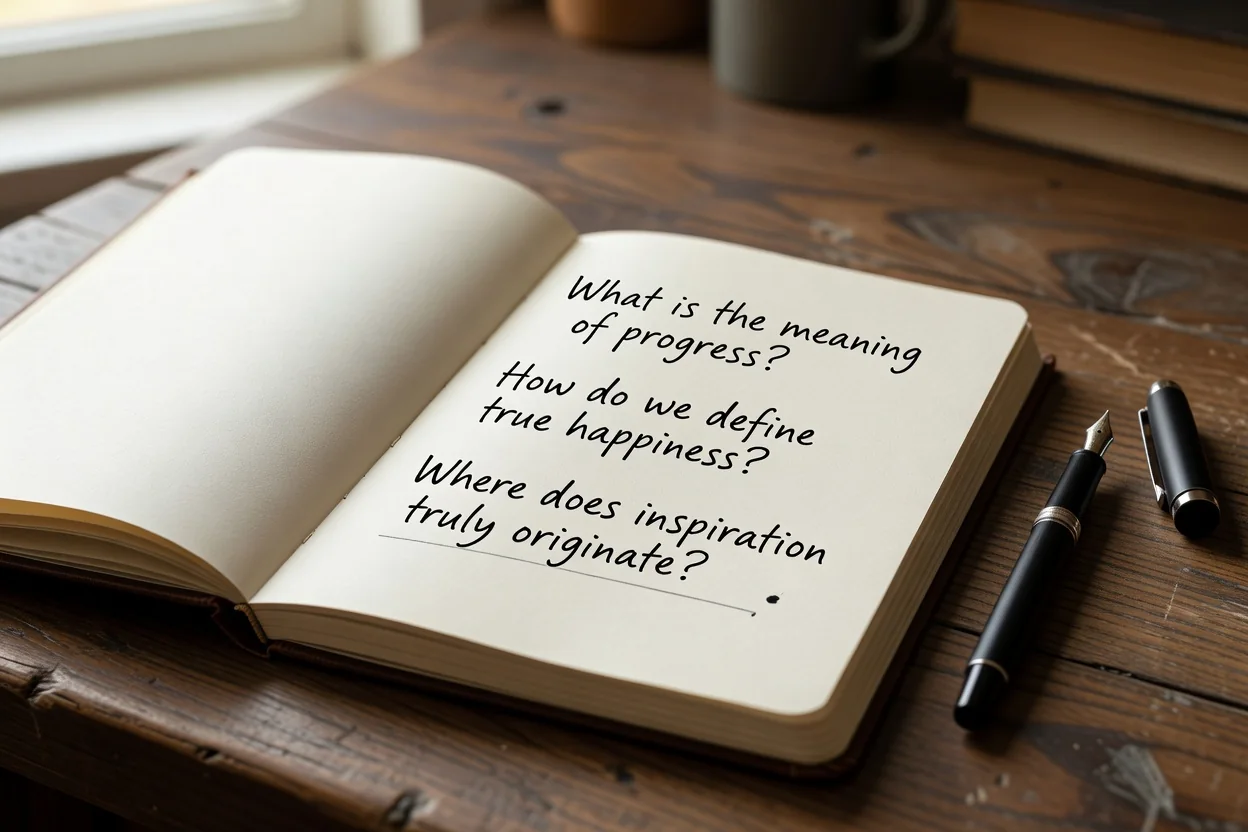 What is the meaning
of progress?
How do we define
true happiness?
Where does inspiration
truly originate?